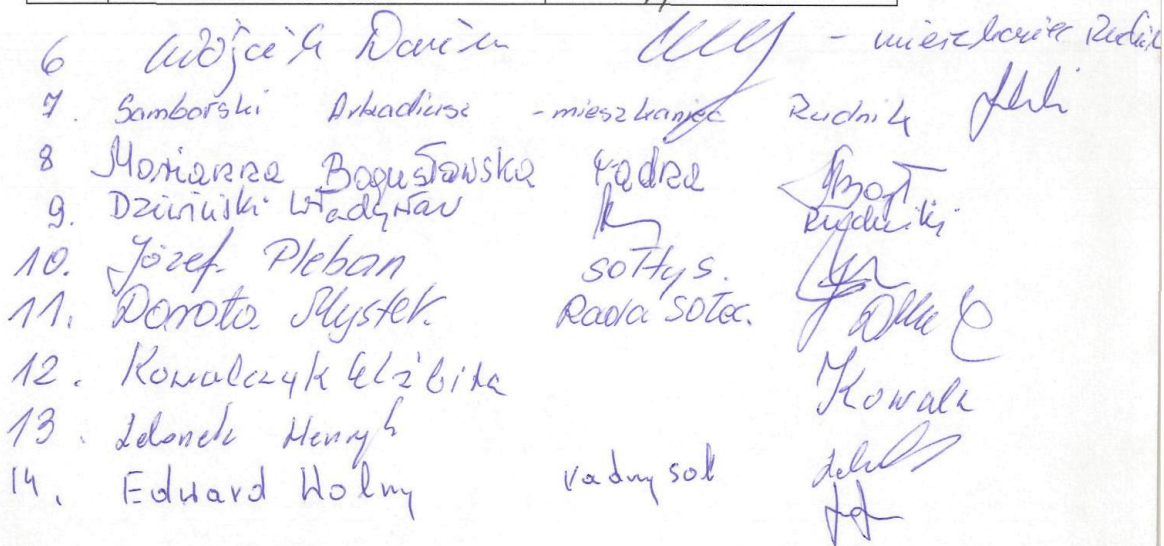 6 Wójcik Dariusz - mieszkaniec Rudnik
7. Samborski Arkadiusz - mieszkaniec Rudnik
8 Marianna Bogusławska radna
9. Dziwiński Władysław Rudniki
10. Józef Pleban sołtys.
11. Dorota Mystek. Rada Sołec.
12. Kowalczyk Elżbieta Kowalk
13. Zdanek Henryk
14. Edward Wolny radny soł